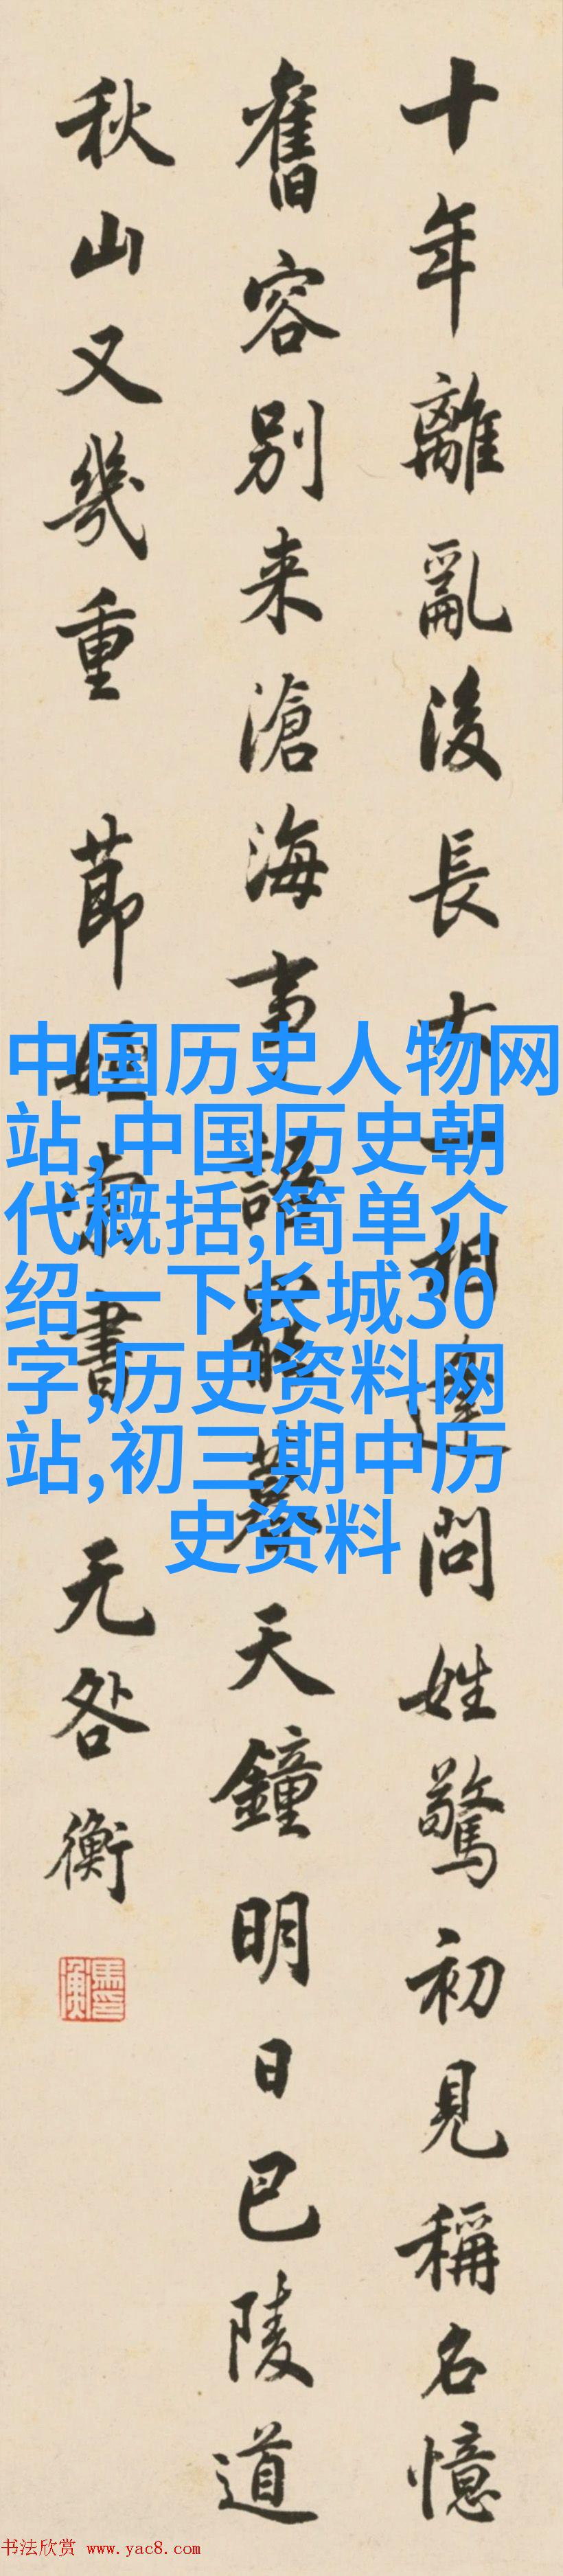 十年離亂後長大一相逢問姓驚初見稱名憶
舊容別来滄海事語罷暮天鐘明日巴陵道
秋山又幾重 節 書 无咎衡
馬印衡
中国历史人物网
站,中国历史朝
代概括,简单介
绍一下长城30
字,历史资料网
站,初三期中历
史资料
书法欣赏 www.yac8.com